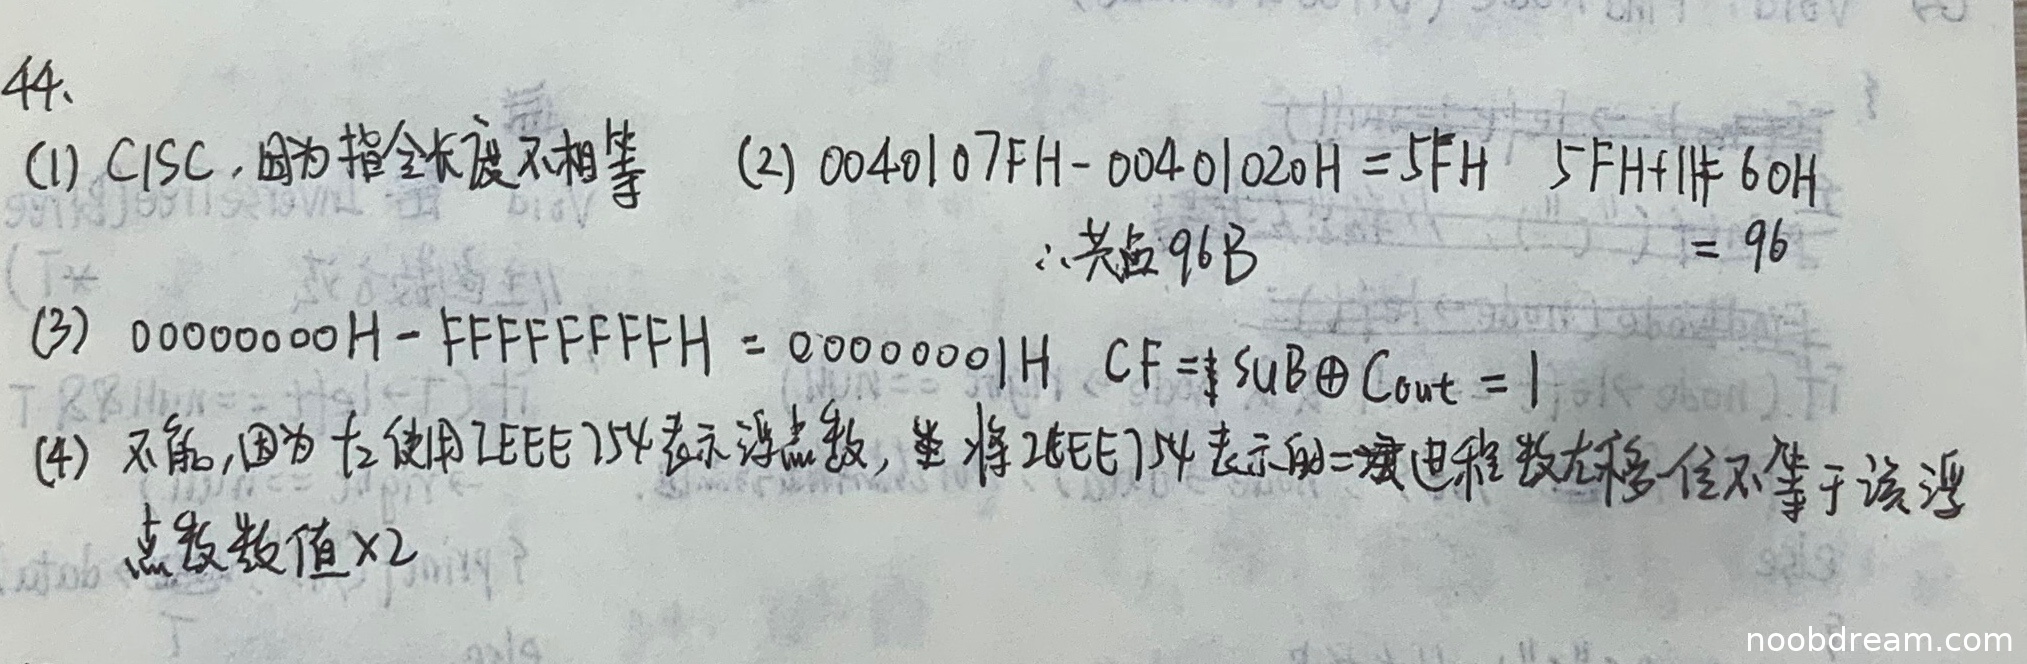 44、
(1) CISC，因为指令长度不相等 (2) 0040107FH-00401020H=5FH 5FH+1H=60H
∴共占96B =96
(3) 00000000H-FFFFFFFFH=00000001H CF=SUB⊕Cout=1
(4) 不能，因为f2使用IEEE754表示浮点数，将IEEE754表示的二进程数左移一位不等于该浮
点数数值×2
noobdream.com